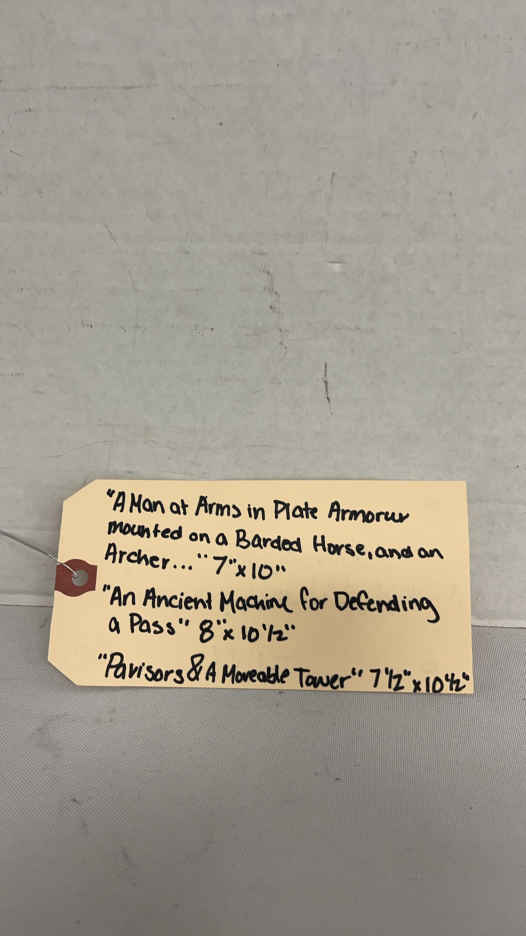 "A Man at Arms in Plate Armorur
mounted on a Barded Horse, and an
Archer..." 7"x10"
"An Ancient Machine for Defending
a Pass" 8"x 10 1/2"
"Pavisors & A Moveable Tower" 7 1/2" x 10 1/2"